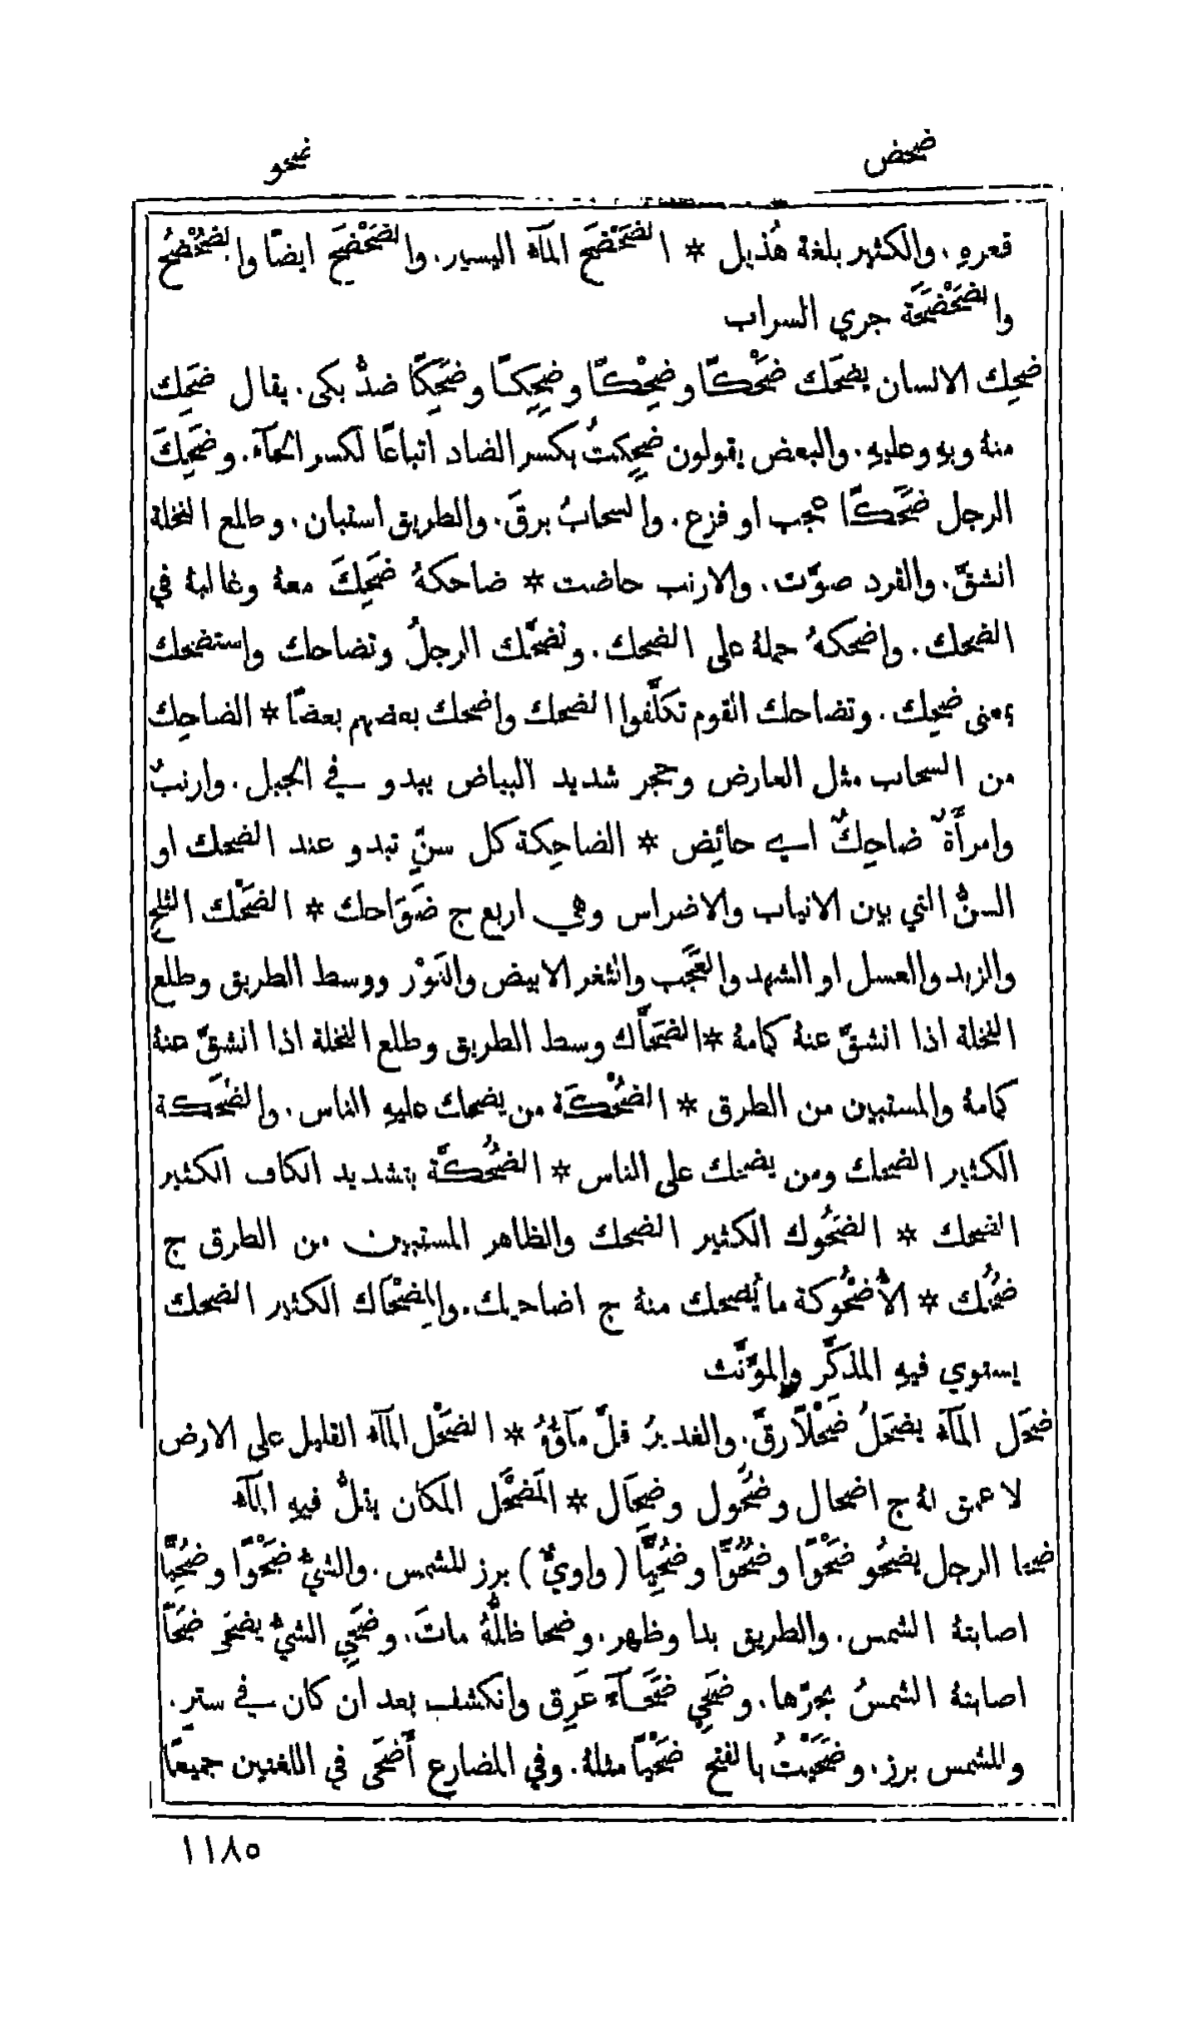 ضحض
ضحو
قعرهِ. والكثير بلغة هُذيل * الضَحْضَح المآءُ اليسير. والضَحْضَح ايضًا والضُحْضُح
والضَحْضَحَة جري السراب
ضحِك الانسان يضحَك ضَحْكًا وضِحْكًا وضِحِكًا وضَحِكًا ضدُّ بكى. يقال ضَحِك
منهُ وبهِ وعليهِ. والبعض يقولون ضِحِكتُ بكسر الضاد اتباعًا لكسر الحآء. وضَحِكَ
الرجل ضَحَكًا عجب او فزع. والسحابُ برقَ. والطريق استبان. وطلع النخلة
انشقَّ. والقرد صوَّت. والارنب حاضت * ضاحكهُ ضَحِكَ معهُ وغالبهُ في
الضحك. واضحكهُ حملهُ على الضحك. وتضحَّك الرجلُ وتضاحك واستضحك
بمعنى ضحِك. وتضاحك القوم تكلَّفوا الضحك واضحك بعضهم بعضًا * الضاحِك
من السحاب مثل العارض وحجر شديد البياض يبدو في الجبل. وارنبٌ
وامرأَةٌ ضاحِكٌ اي حائِض * الضاحِكة كل سنٍّ تبدو عند الضحك او
السنُّ التي بين الانياب والاضراس وهي اربع ج ضَوَاحك * الضَحْك الثلج
والزبد والعسل او الشهد والعَجَب والثغر الابيض والنَوْر ووسط الطريق وطلع
النخلة اذا انشقَّ عنهُ كمامهُ * الضَحَّاك وسط الطريق وطلع النخلة اذا انشقَّ عنهُ
كمامهُ والمستبين من الطرق * الضُحْكَة من يضحك عليهِ الناس. والضُحَكة
الكثير الضحك ومن يضحك على الناس * الضُحُكَّة بتشديد الكاف الكثير
الضحك * الضَحُوك الكثير الضحك والظاهر المستبين من الطرق ج
ضُحُك * الأُضْحُوكة ما يُضحك منهُ ج اضاحيك. والمِضْحَاك الكثير الضحك
يستوي فيهِ المذكَّر والمؤَنَّث
ضحَل المآءُ يضحَلُ ضَحْلًا رقَّ. والغديرُ قلَّ مآؤُهُ * الضَحْل المآءُ القليل على الارض
لا عمق لهُ ج اضحال وضُحُول وضِحَال * المَضْحَل المكان يقلُّ فيهِ المآءُ
ضحا الرجل يضحُو ضَحْوًا وضُحُوًّا وضُحِيًّا (واويٌّ) برز للشمس. والشيُّ ضَحْوًا وضُحِيًّا
اصابتهُ الشمس. والطريق بدا وظهر. وضحا ظلُّهُ ماتَ. وضَحِي الشيُّ يضحَى ضَحًا
اصابتهُ الشمسُ بحرّها. وضَحِي ضَحَآءً عَرِق وانكشف بعد ان كان في سترٍ.
وللشمس برز. وضَحَيْتُ بالفتح ضَحْيًا مثلهُ. وفي المضارع أَضحَى في اللغتين جميعًا
١١٨٥